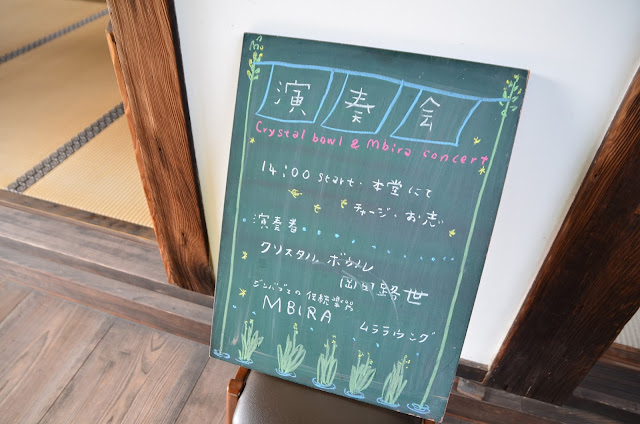 演奏会
Crystal bowl & Mbira concert
14:00 start・本堂にて
チャージ・お志
演奏者
クリスタル ボウル
路世
ジンバブエの伝統楽器
MBIRA
ムララウング